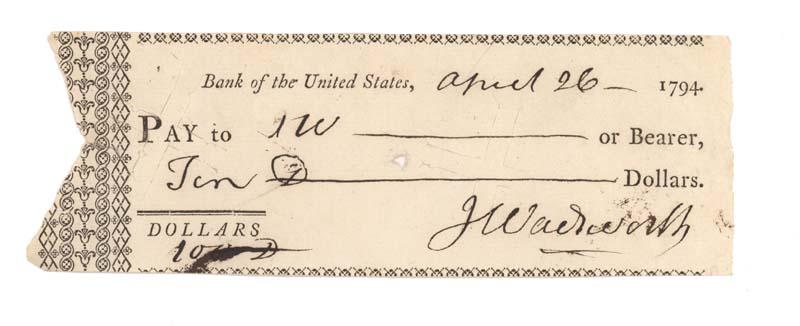 Bank of the United States, April 26 — 1794.
PAY to JW ——— or Bearer,
Ten ——— Dollars.
JWadsworth
DOLLARS
10